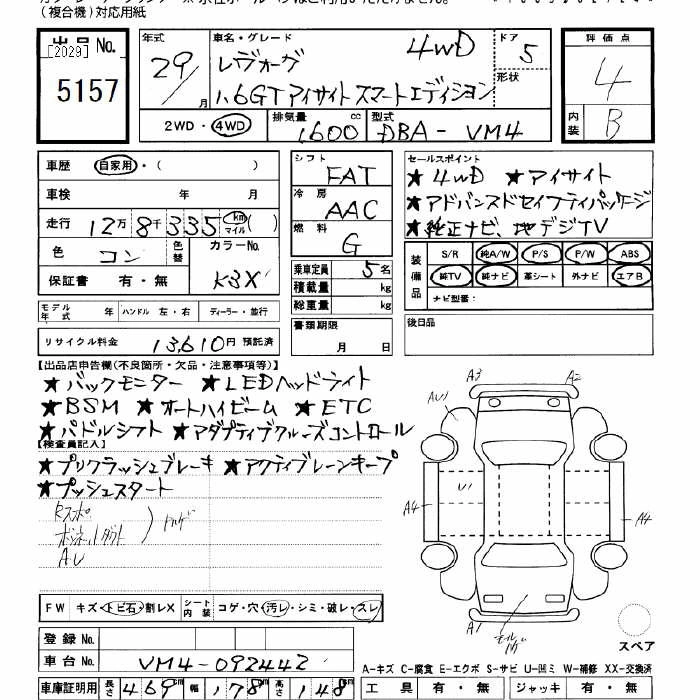 （複合機）対応用紙
出品No.
[2029]
5157
年式
29/
月
車名・グレード
レヴォーグ 4WD
1.6GTアイサイトスマートエディション
ドア 5
形状
2WD・4WD
排気量 1600 cc
型式 DBA-VM4
評価点
4
内装 B
車歴 自家用・（ ）
車検 年 月
走行 12万8千335 km マイル ( )
色 コン
色替
カラーNo. K3X
保証書 有・無
シフト FAT
冷房 AAC
燃料 G
乗車定員 5名
積載量 kg
総重量 kg
セールスポイント
★4WD ★アイサイト
★アドバンスドセイフティパッケージ
★純正ナビ、地デジTV
装備品
S/R 純A/W P/S P/W ABS
純TV 純ナビ 革シート 外ナビ エアB
ナビ型番：
モデル年式 年 ハンドル 左・右 ディーラー・並行
リサイクル料金 13,610円 預託済
書類期限
月 日
後日品
【出品店申告欄(不良箇所・欠品・注意事項等)】
★バックモニター ★LEDヘッドライト
★BSM ★オートハイビーム ★ETC
★パドルシフト ★アダプティブクルーズコントロール
【検査員記入】
★プリクラッシュブレーキ ★アクティブレーンキープ
★プッシュスタート
Rスポ
AU
A3 A2
AU1
U1
A4 A4
A1
スペア
FW キズ・トビ石・割レX シート内装 コゲ・穴・汚レ・シミ・破レ・スレ
登録No.
車台No. VM4-092442
車庫証明用 長さ 469cm 幅 178cm 高さ 148cm
A-キズ C-腐食 E-エクボ S-サビ U-凹ミ W-補修 XX-交換済
工具 有・無 ジャッキ 有・無